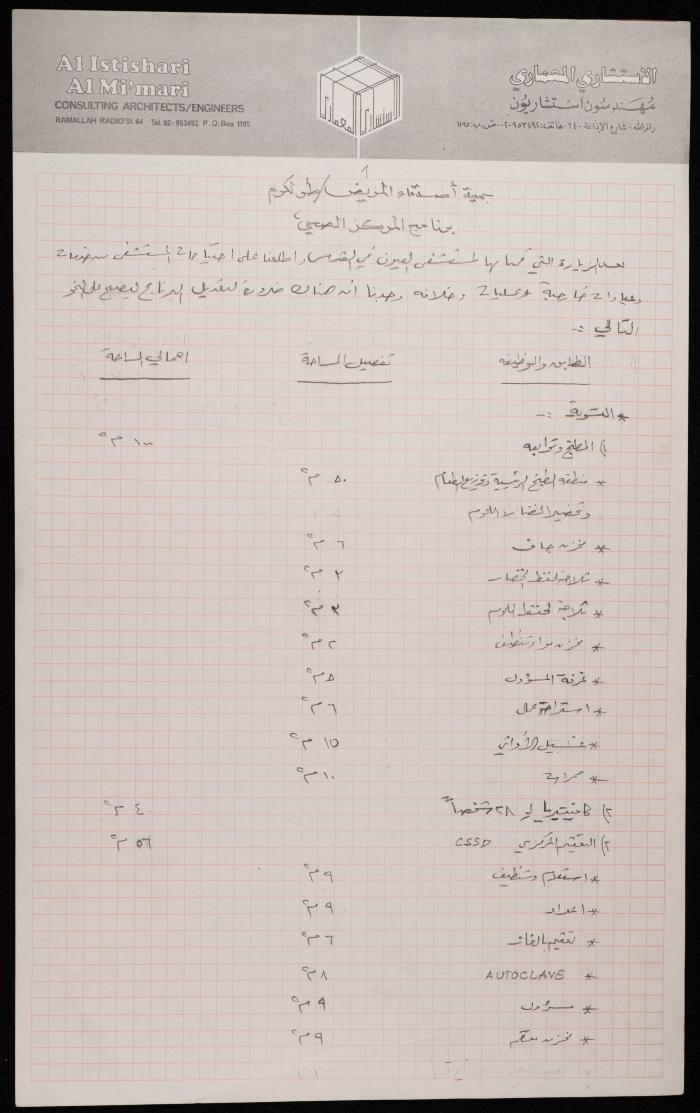 Al Istishari
Al Mi'mari
CONSULTING ARCHITECTS/ENGINEERS
RAMALLAH RADIO St. 64 Tel. 02-953492 P.O.Box 1195
الاستشاري المعماري
مهندسون استشاريون
رام الله - شارع الإذاعة - ٦٤ - هاتف: ٩٥٣٤٩٢-٠٢ - ص.ب: ١١٩٥
جمعية أصدقاء المريض / طولكرم
برنامج المركز الصحي
بعد الزيارة التي قمنا بها لمستشفى العيون في القدس واطلعنا على احتياجات المستشفى من خدمات
وعيادات خارجية وعمليات وخلافه وجدنا أنه هناك ضرورة لتعديل البرنامج ليصبح على النحو
التالي :-
الطابق والوظيفه تفصيل المساحة اجمالي المساحة
* التسوية :-
١) المطبخ وتوابعه ١٠٠ م٢
* منطقه الطبخ الرئيسية وتوزيع الطعام ٥٠ م٢
وتحضير الخضار واللحوم
* مخزن جاف ٦ م٢
* ثلاجة لحفظ الخضار ٣ م٢
* ثلاجة لحفظ اللحوم ٣ م٢
* مخزن مواد تنظيف ٢ م٢
* غرفة المسؤول ٥ م٢
* استراحة عمال ٦ م٢
* غسيل الأواني ١٥ م٢
* ممرات ١٠ م٢
٢) كافيتيريا لـ ٢٨ شخصاً ٤٠ م٢
٣) التعقيم المركزي CSSD ٥٦ م٢
* استلام وتنظيف ٩ م٢
* اعداد ٩ م٢
* تعقيم بالغاز ٦ م٢
* AUTOCLAVE ٨ م٢
* مسؤول ٩ م٢
* مخزن معقم ٩ م٢